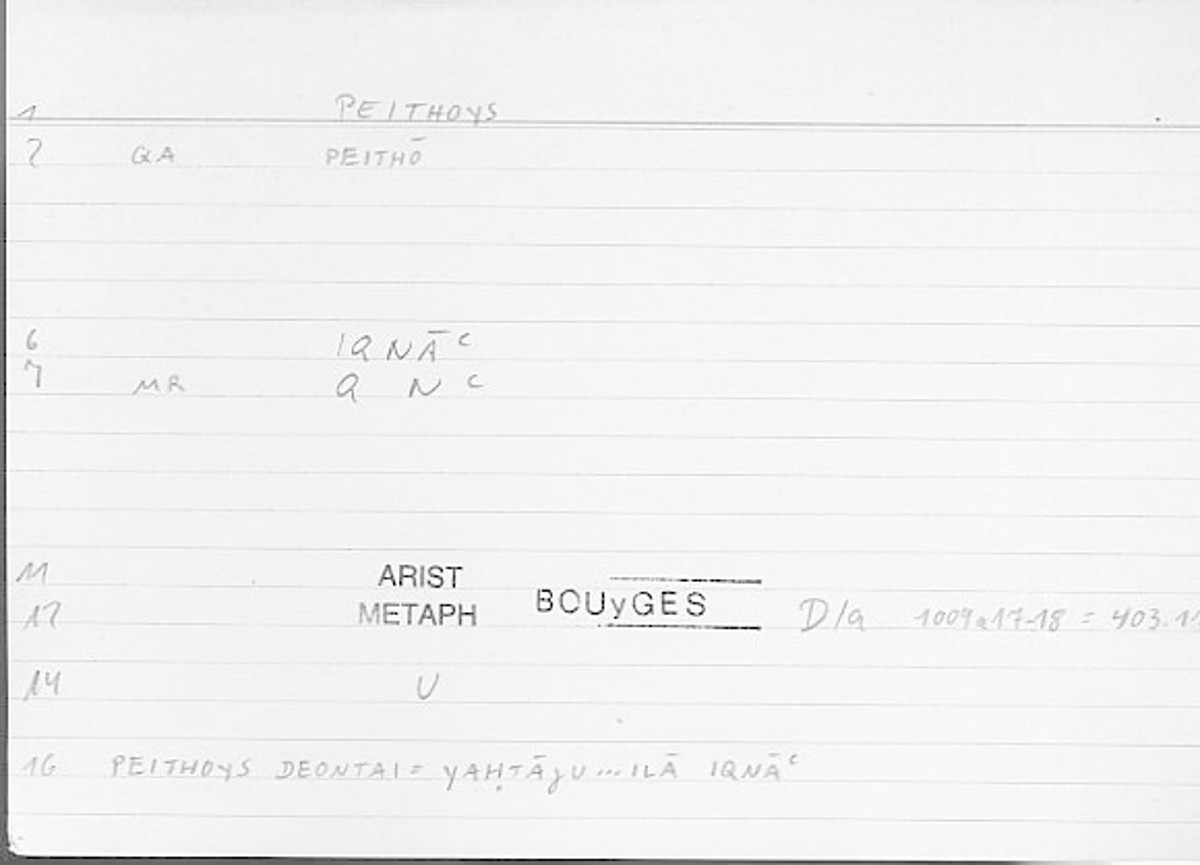 1 PEITHOYS
2 QA PEITHŌ
6 IQNĀᶜ
7 MR Q N ᶜ
11 ARIST
12 METAPH BOUYGES D/a 1009a17-18 = 403.11
14 U
16 PEITHOYS DEONTAI = YAḤTĀJU...ILĀ IQNĀᶜ